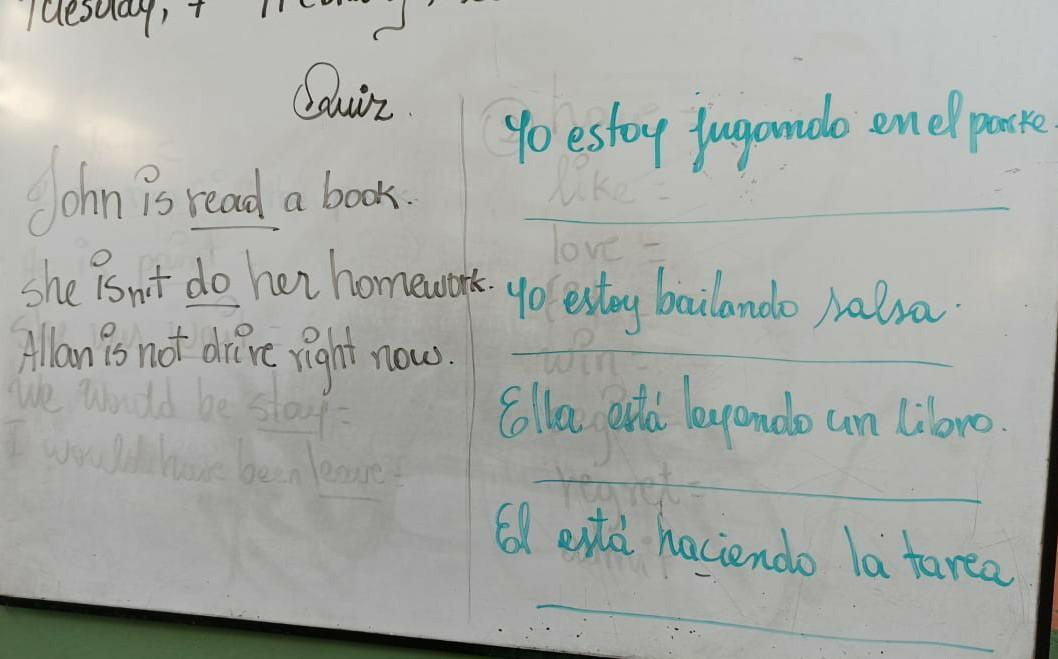 Tuesday,
Quiz.
John is read a book.
She isn't do her homework.
Allan is not drive right now.
We would be stay =
I would have been leave =
Yo estoy jugando en el parke.
like =
love =
Yo estoy bailando salsa.
win =
Ella está leyendo un libro.
regret =
El está haciendo la tarea